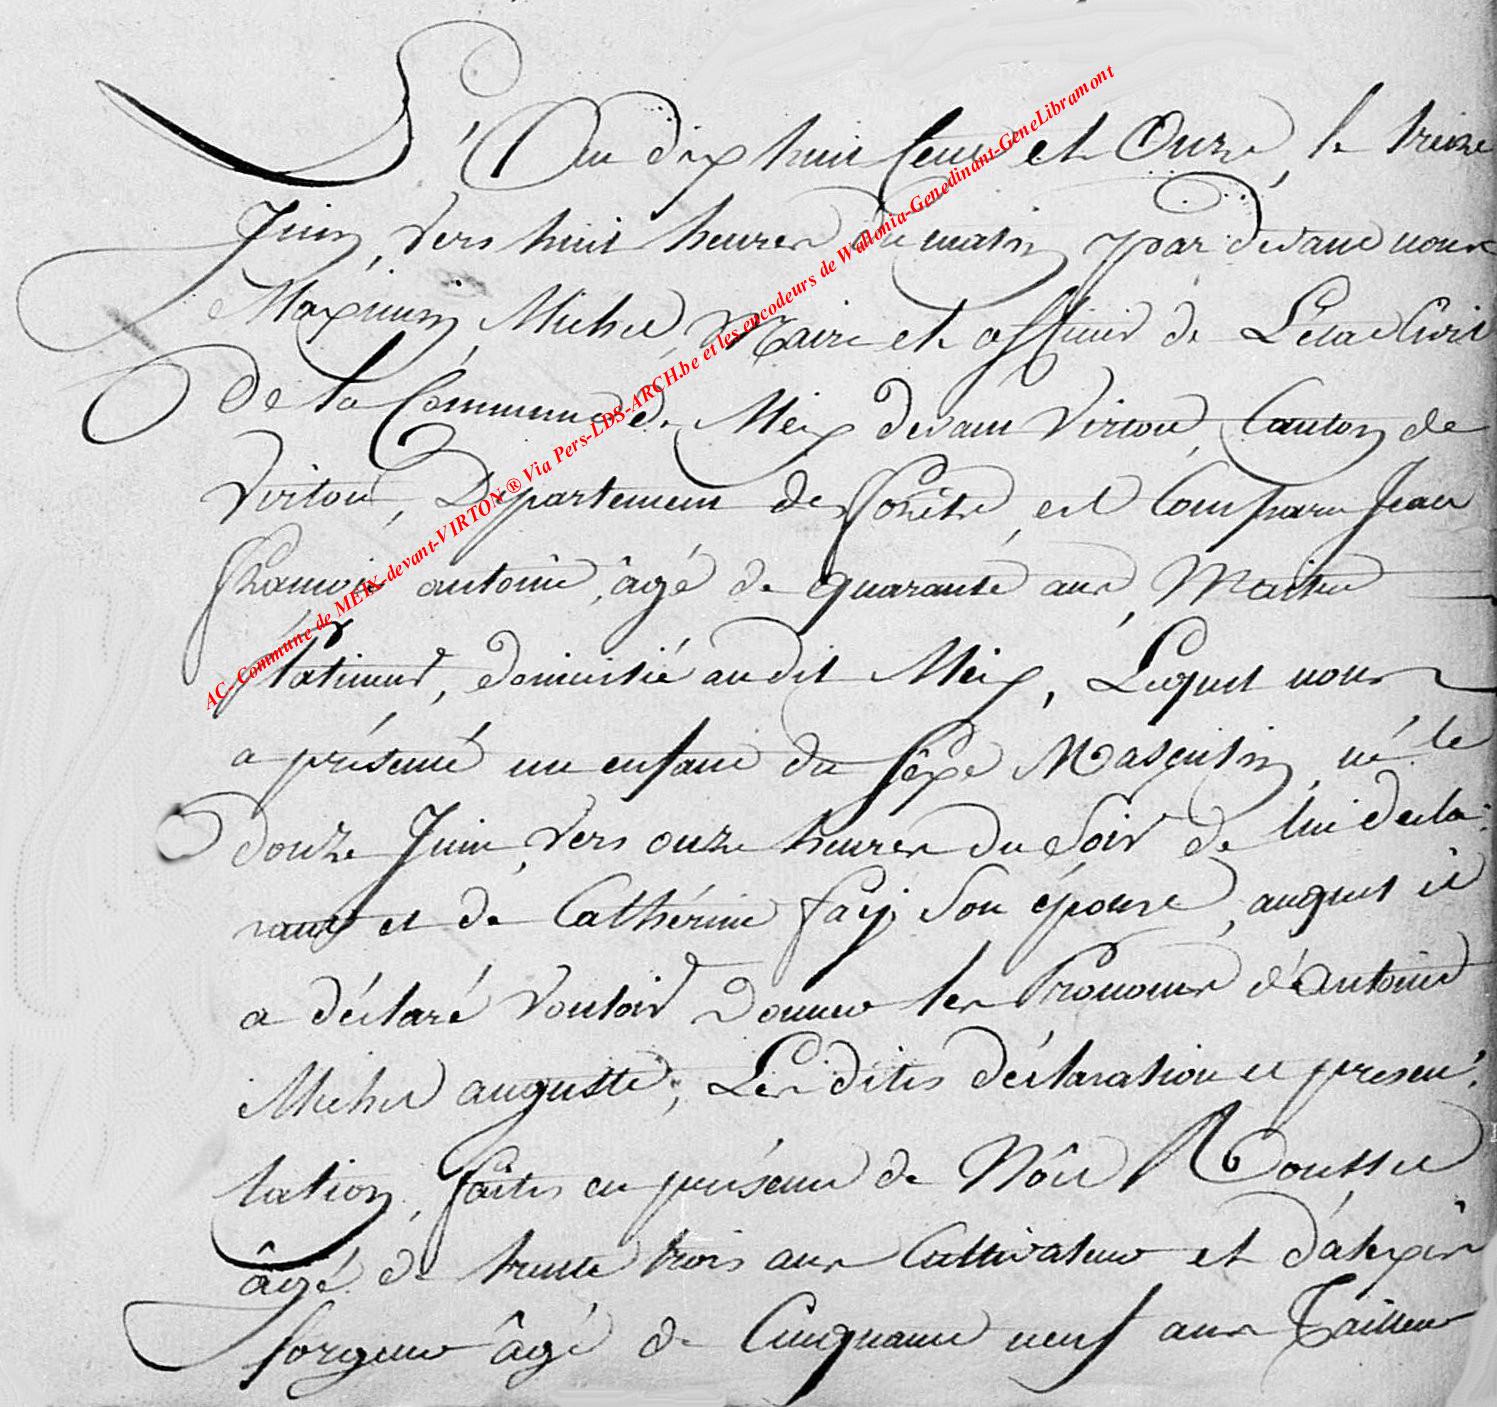 L'An dix huit Cent et Onze, le treize
Juin, vers huit heures du matin, par dévant nous
Maximin Michel, Maire et officier de L'etat Civil
De la Commune de Meix devant Virton, Canton de
Virton, Département des forêts, est Comparu Jean
françois antoine, âgé de quarante ans, Maitre
platineur, domicilié audit Meix, Lequel nous
a présenté un enfant du sêxe Masculin, né le
douze Juin, vers onze heures du Soir de lui décla-
rant et de Cathérine fay, Son épouse, auquel il
a déclaré Vouloir Donner les Prénoms d'Antoine
Michel auguste; Les dites déclaration et présen-
tation, faites en présence de Nôel Roussel
âgé de trente trois ans Cultivateur et d'alexis
forgeur âgé de Cinquante neuf ans Tailleur
AC- Commune de MEIX-devant-VIRTON ® Via Pers-LDS-ARCH.be et les encodeurs de Wallonia-Genedinant-GeneLibramont